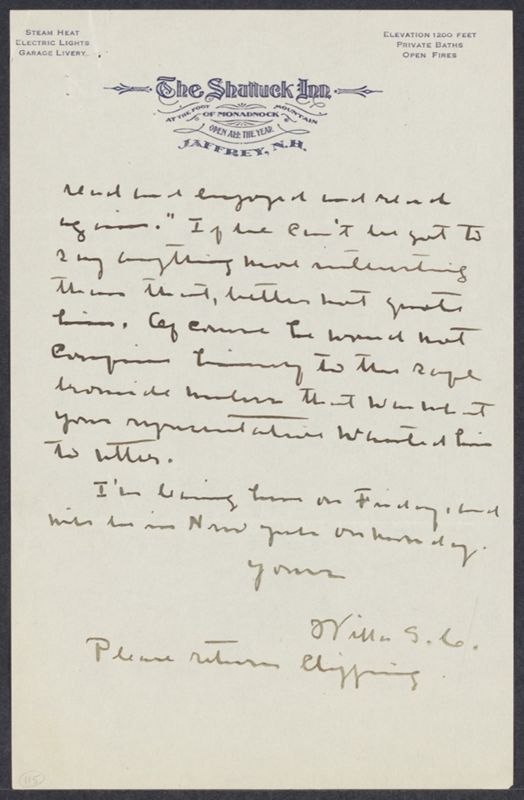 STEAM HEAT
ELECTRIC LIGHTS
GARAGE LIVERY
ELEVATION 1200 FEET
PRIVATE BATHS
OPEN FIRES
The Shattuck Inn
AT THE FOOT OF MONADNOCK MOUNTAIN
OPEN ALL THE YEAR
JAFFREY, N.H.
read and enjoyed and read
again." If he can't be got to
say anything more interesting
than that, better not quote
him. Of course he would not
confine himself to this safe
bromide unless that was what
your representative wanted him
to utter.
I'm leaving here on Friday, and
will be in New York on Monday.
Yours
Willa S. C.
Please return clipping
115